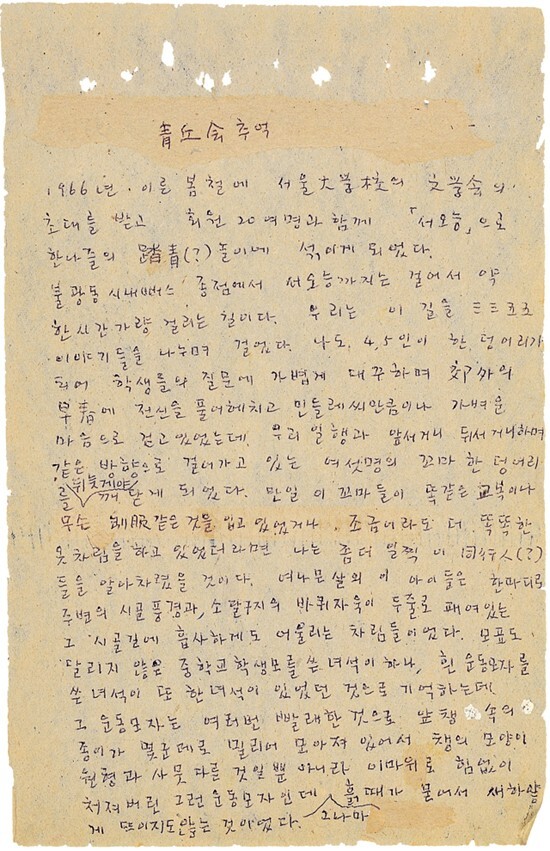 靑丘会 추억
1966년. 이른 봄철에 서울大學校의 文學會의
초대를 받고 회원 20여명과 함께 「서오능」으로
한나즐의 踏靑(?)놀이에 섞이게 되었다.
불광동 시내뻐스 종점에서 서오능까지는 걸어서 약
한시간가량 걸리는 칠이다. 우리는 이 길을 三三五五
이야기들을 나누며 걸었다. 나도. 4,5인이 한 덩어리가
되어 학생들의 질문에 가볍게 대꾸하며 郊外의
早春에 전신을 풀어헤치고 민들레씨만큼이나 가벼운
마음으로 걷고있었는데, 우리 일행과 앞서거니 뒤서거니하며
같은 방향으로 걸어가고 있는 여섯명의 꼬마 한 덩어리
를 뒤늦게야 깨닫게 되었다. 만일 이 꼬마들이 똑같은 교복이나
무슨 制服같은것을 입고있었거나, 조금이라도 더 똑똑한
옷차림을 하고 있었더라면 나는 좀더 일찍 이 同行人(?)
들을 알아차렸을 것이다. 여나믄살의 이 아이들은 한마디로
주변의 시골풍경과, 소달구지의 바퀴자욱이 두줄로 패여있는
그 시골길에 흡사하게도 어울리는 차림들이었다. 모표도
달리지 않은 중학교학생모를 쓴 녀석이 하나, 흰 운동모자를
쓴 녀석이 또 한녀석이 있었던 것으로 기억하는데,
그 운동모자는 여러번 빨래한 것으로 앞챙 속의
종이가 몇군데로 밀리어 모아져 있어서 챙의 모양이
원형과 사뭇 다른 것일뿐 아니라 이마위로 힘없이
처져버린 그런운동모자인데 흙때가 묻어서 새하얗
게 뜨이지도않는 것이었다. 그나마